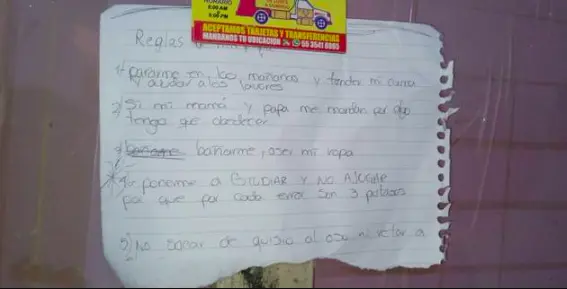 HORARIO
8:00 AM
9:00 PM
ACEPTAMOS TARJETAS Y TRANSFERENCIAS
MANDANOS TU UBICACION
Reglas
1- pararme en las mañanas y tender mi cama
y ayudar a los labores
2- Si mi mamá y papa me mandan por algo
tengo que obedecer
bañarme, aser mi ropa
4- ponerme a ESTUDIAR Y NO AJUGAR
por que por cada error son 3 patadas
5) No sacar de quisio al oso ni retar a